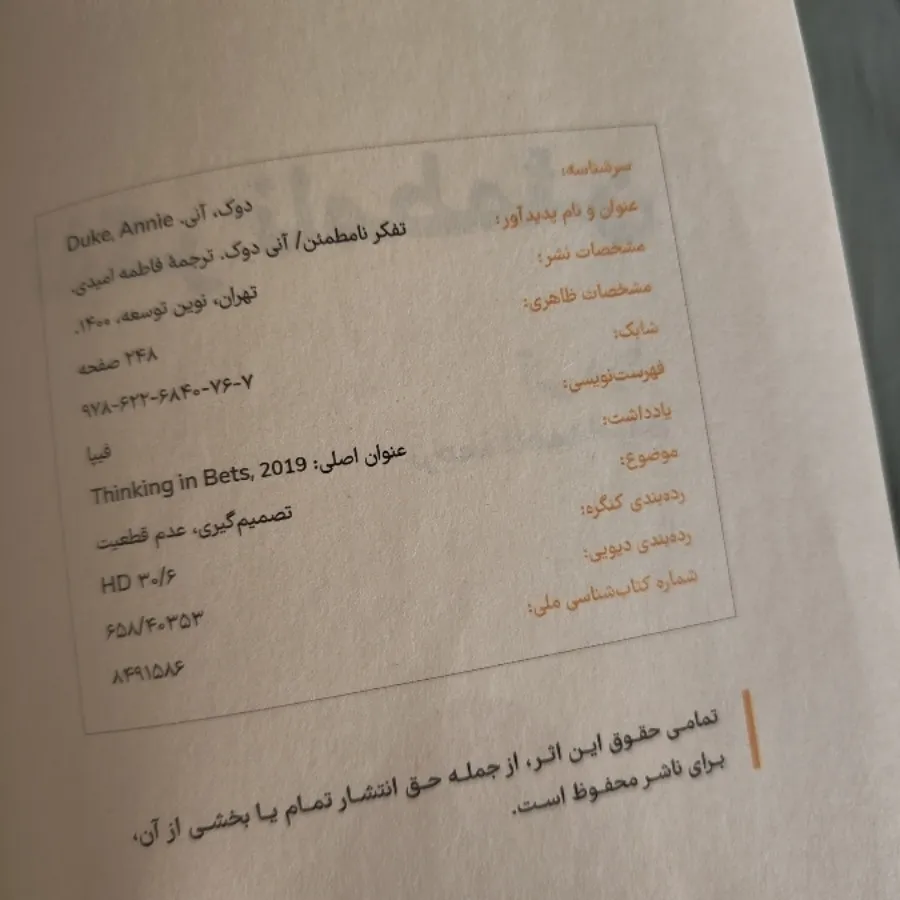 سرشناسه: دوک، آنی. Duke, Annie
عنوان و نام پدیدآور: تفکر نامطمئن/ آنی دوک. ترجمهٔ فاطمه امیدی.
مشخصات نشر: تهران، نوین توسعه، ۱۴۰۰.
مشخصات ظاهری: ۲۴۸ صفحه
شابک: ۹۷۸-۶۲۲-۶۸۴۰-۷۶-۷
فهرست‌نویسی: فیپا
یادداشت: عنوان اصلی: Thinking in Bets, 2019
موضوع: تصمیم‌گیری، عدم قطعیت
رده‌بندی کنگره: HD ۳۰/۶
رده‌بندی دیویی: ۶۵۸/۴۰۳۵۳
شماره کتاب‌شناسی ملی: ۸۴۹۱۵۸۶
تمامی حقوق این اثر، از جمله حق انتشار تمام یا بخشی از آن،
برای ناشر محفوظ است.